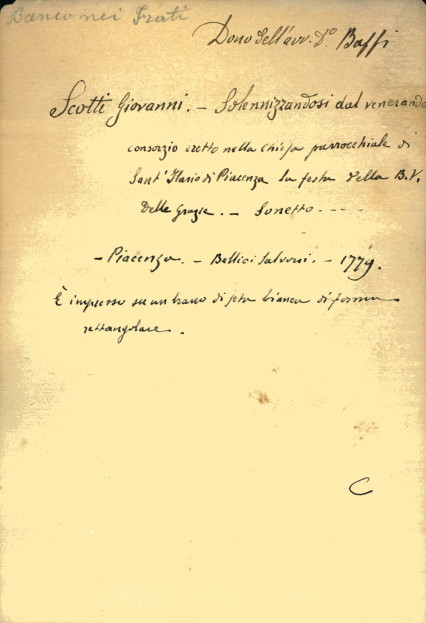 Banco nei Frati
Dono dell'avv. D.º Baffi
Scotti Giovanni. — Solennizzandosi dal venerando
consorzio eretto nella Chiesa parrocchiale di
Sant'Ilario di Piacenza la festa della B.V.
delle Grazie. — Sonetto ----
— Piacenza. — Bellici Salvoni. — 1779.
È impresso su un brano di seta bianca di forma
rettangolare.
C